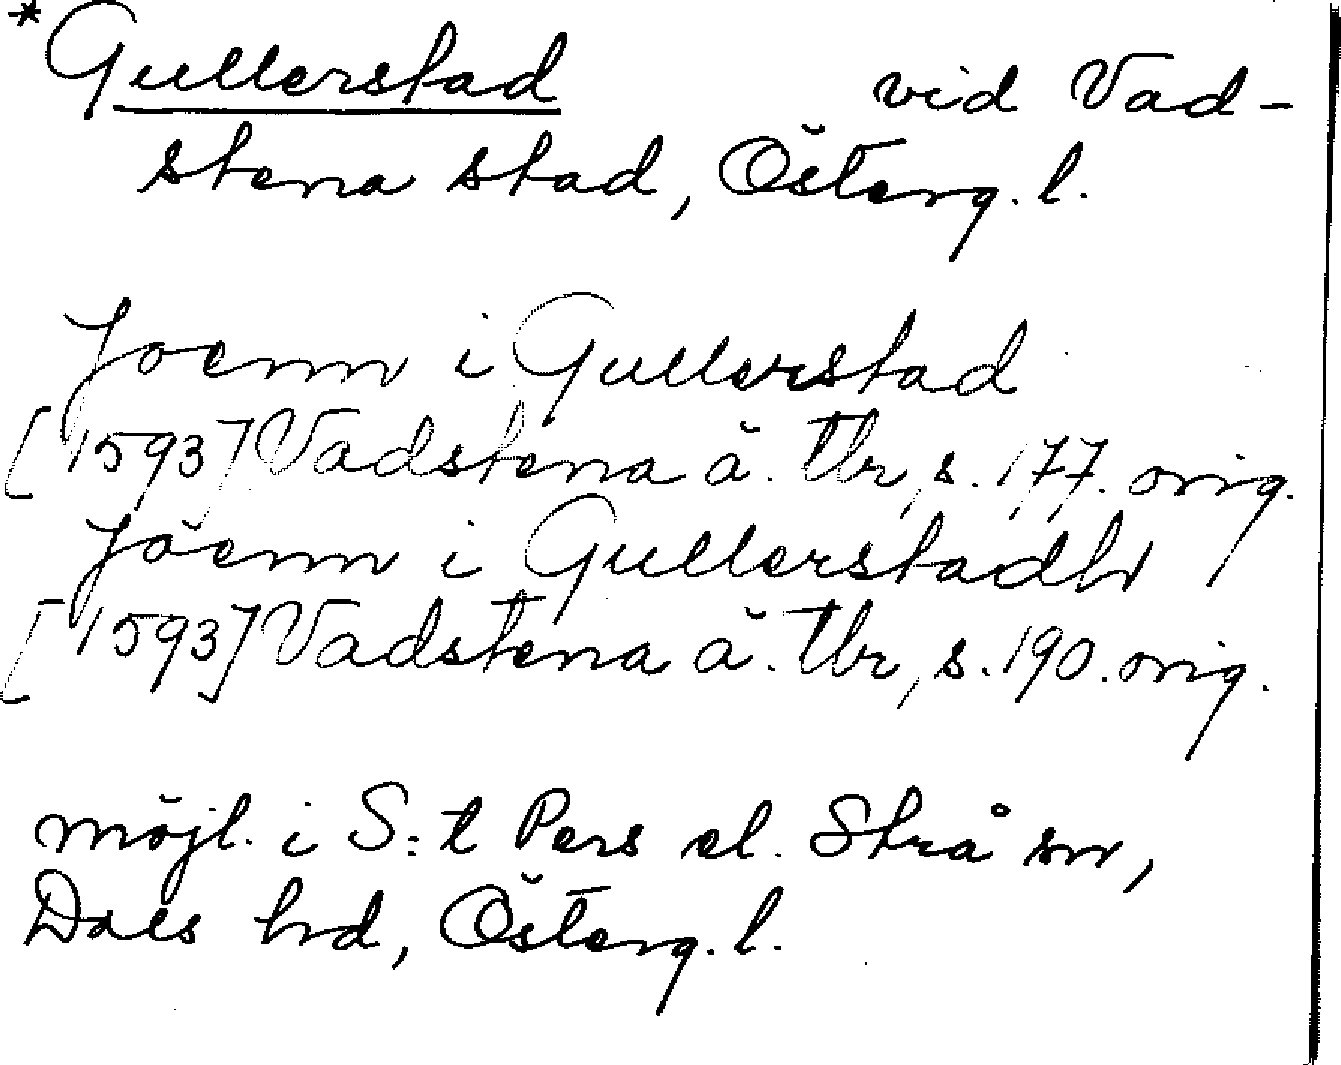 *Gullerstad vid Vad-
stena stad, Österg. l.
Joenn i Gullerstad
[1593] Vadstena ä. Tbr, s. 177. orig.
Jöenn i Gullerstadh
[1593] Vadstena ä. Tbr, s. 190. orig.
möjl. i S:t Pers el. Strå sn,
Dals hd, Österg. l.